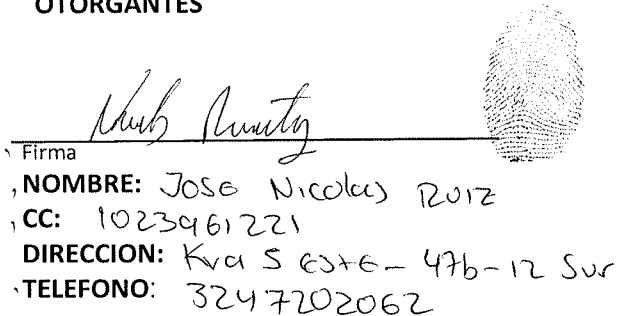 OTORGANTES
Firma
NOMBRE: JOSE Nicolas RUIZ
CC: 1023961221
DIRECCION: Kra 5 ESTE - 47b-12 Sur
TELEFONO: 3247202062